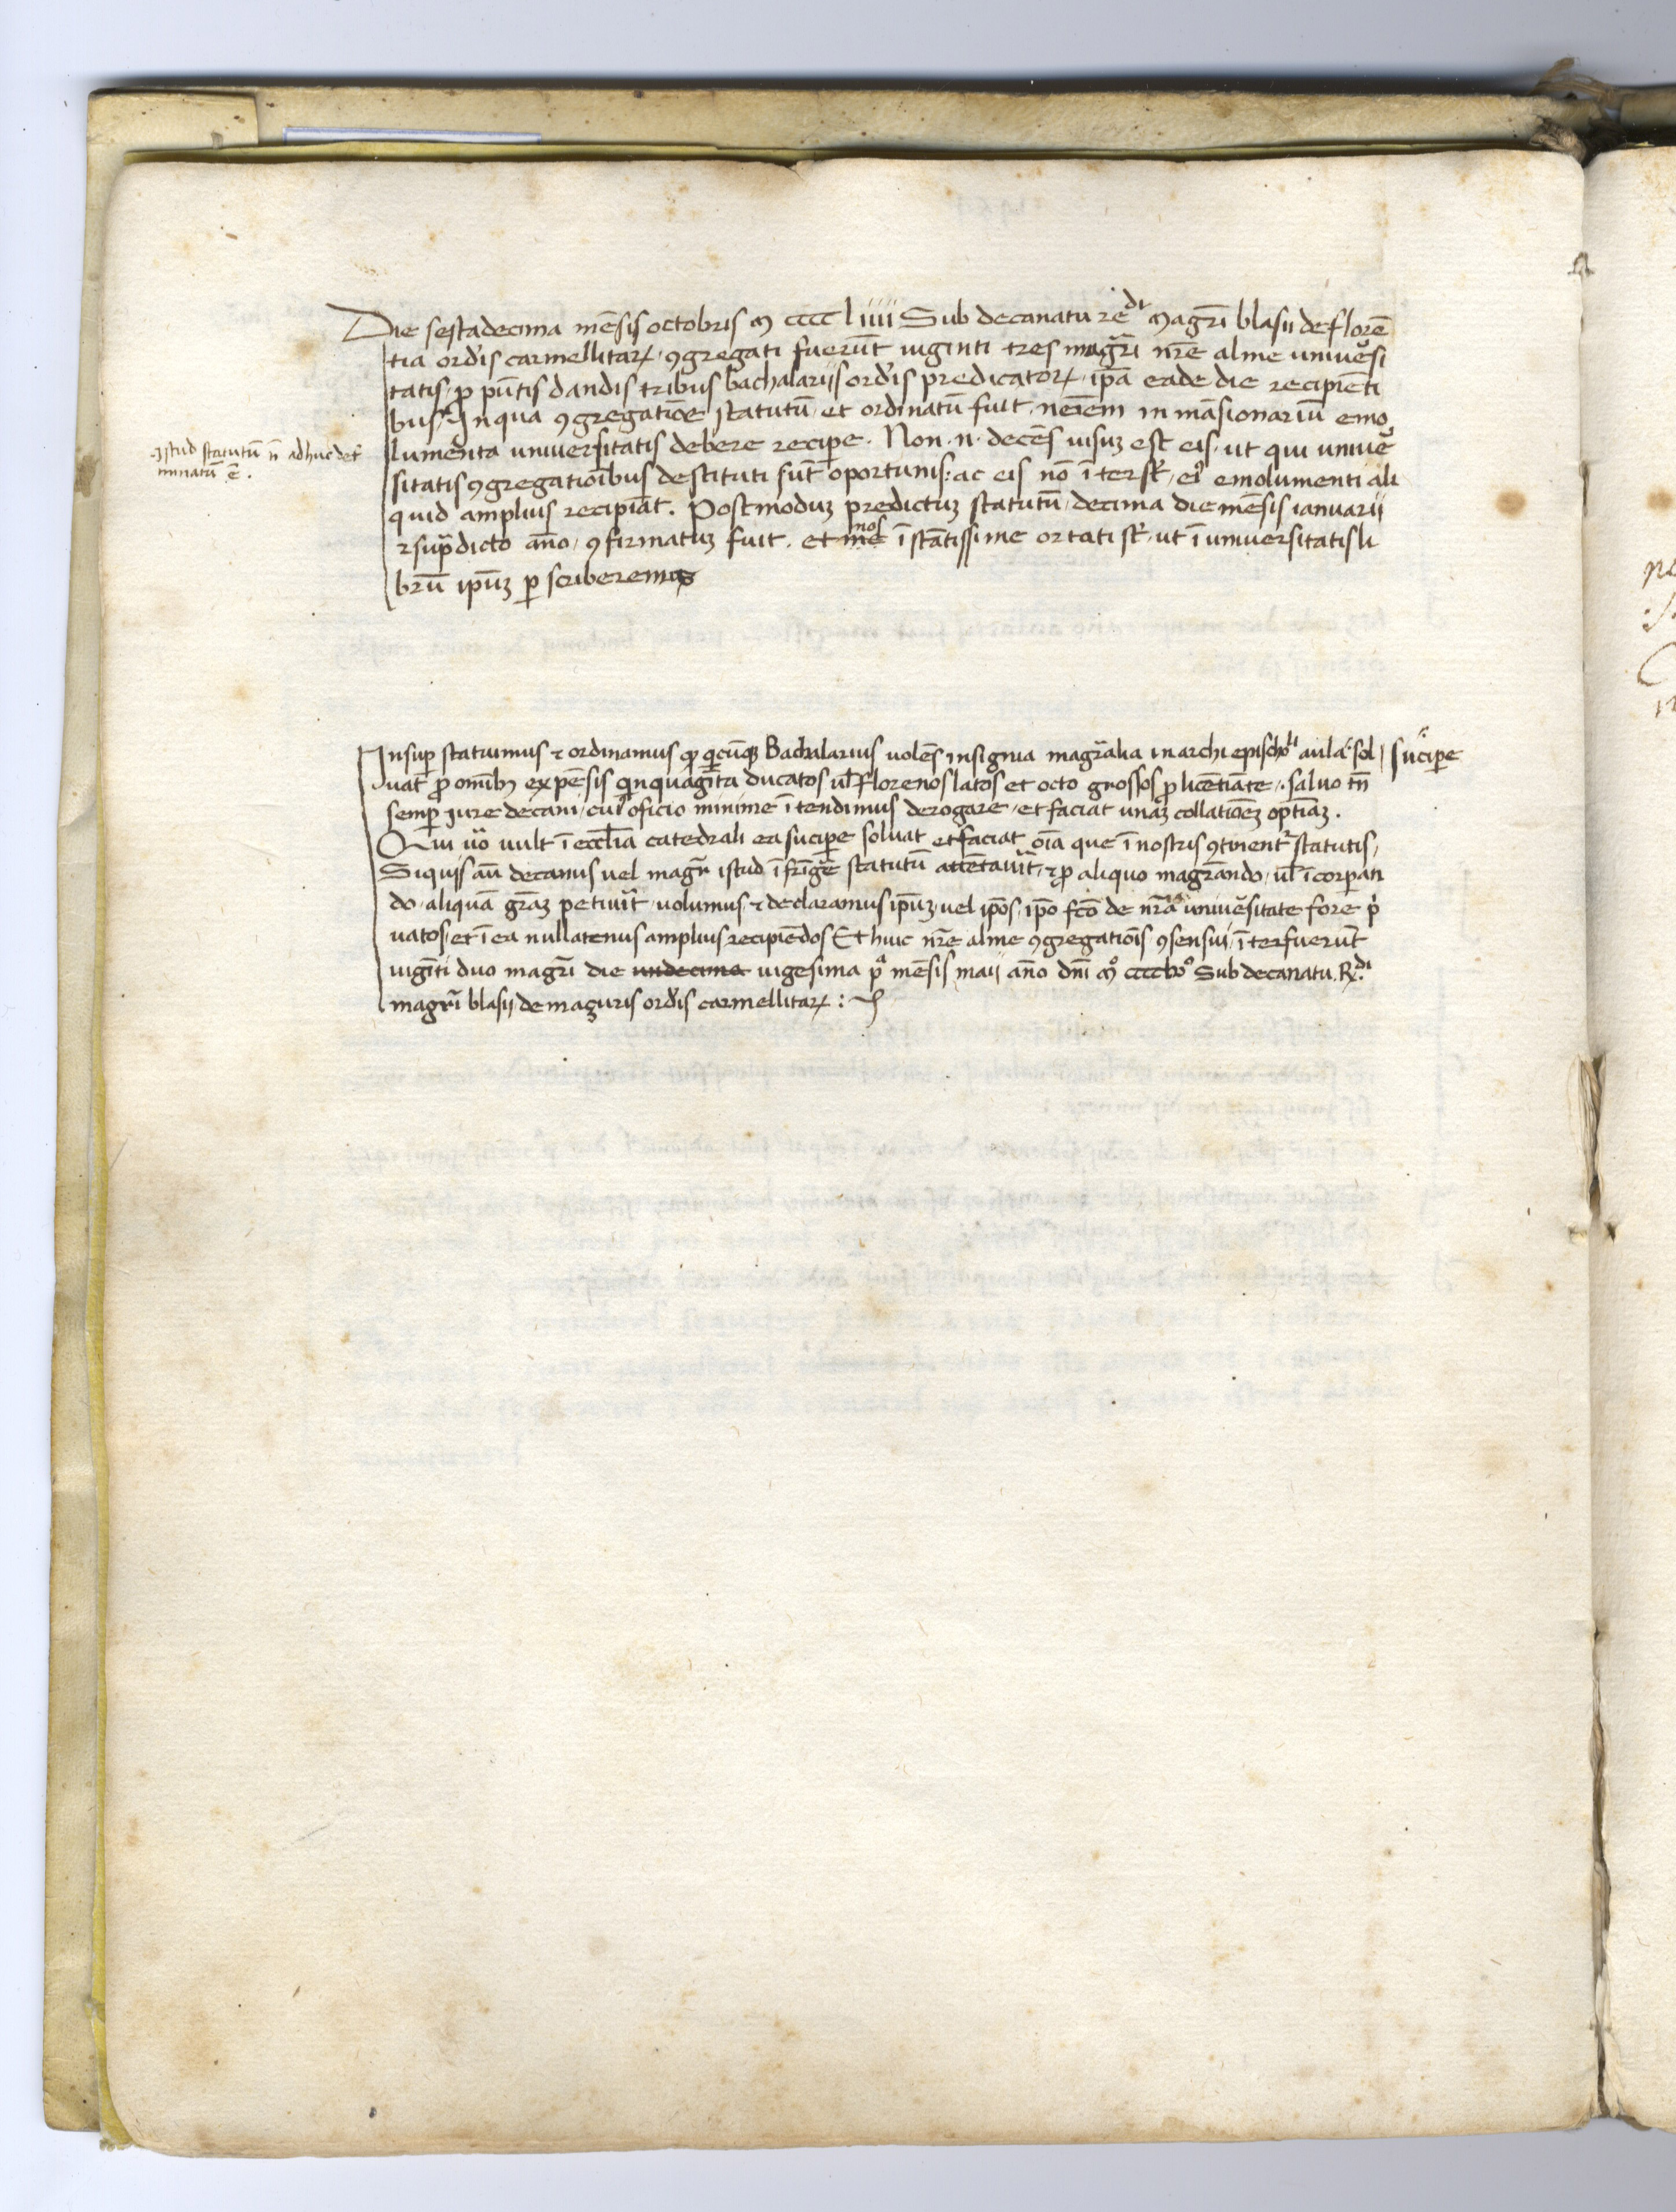 Die sestadecima mēsis octobris m̊ cccc liiii Sub decanatu rēdi magr̄i blasii de florē
tia ord̄is carmellitarꝝ, ꝯgregati fuerūt uiginti tres magr̄i nr̄e alme uniũsi
tatis, ꝓ pūtis dandis tribus bachalariis ord̄is predicatorꝝ, ip̄a eadē die recipiēti
bus. In qua ꝯgregatiōe statutū, et ordinatū fuit, nēiēm in māsionariū emo
lumenta universitatis debere recipere. Non .n. decēs uisuꝫ est eis, ut qui uniuē
sitatis ꝯgregatiōibus destituti sūt oportunis: ac eis nō īterst̄, ei9 emolumenti ali
quid amplius recipiāt. Postmoduꝫ predictuꝫ statutū, decima die mēsis ianuarii
supͣdicto āno, ꝯfirmatuꝫ fuit. et me nos īstātissime ortati st̄, ut ī universitatis li
brū ip̄uꝫ ꝑscriberemus
Istud statutū n̄ adhuc det̄
minatū ē.
Insuꝑ statuimus ⁊ ordinamus ꝙ qͥcūqꝫ Bachalarius uolēs insignia magr̄alia in archiepischoli aula sucipe, sol
uat ꝓ omībꝫ expēsis qͥnquagīta ducatos ul̄ florenos latos et octo grossos ꝓ licētiāte, saluo tn̄
semꝑ iure decani, cui9 oficio minime ītendimus derogare, et faciat unaꝫ collatiōeꝫ optīaꝫ.
Qui ūo uult ī eccl̄ia catedrali ea sucipe soluat et faciat oīa que ī nostris ꝯtinent̄ statutis,
Siquis aū decanus uel magr̄ istud īfrīgē statutū attētauīt, ⁊ ꝓ aliquo magrādo, ul̄ īcorꝑan
do, aliquā grāꝫ petiuīt, uolumus, ⁊ declaramus ip̄uꝫ, uel ip̄os, ip̄o fcō de nr̄a uniũsitate fore pͥ
uatos, et ī ea nullatenus amplius recipiēdos Et huic nr̄e alme ꝯgregatiōis ꝯsensui, īterfuerūt
uigīti duo magr̄i die undecima uigesima pͣ mēsis maii āno dn̄i m̊ cccclvo Sub decanatu. R.di
magr̄i blasii, de maçuris ord̄is carmellitarꝝ :